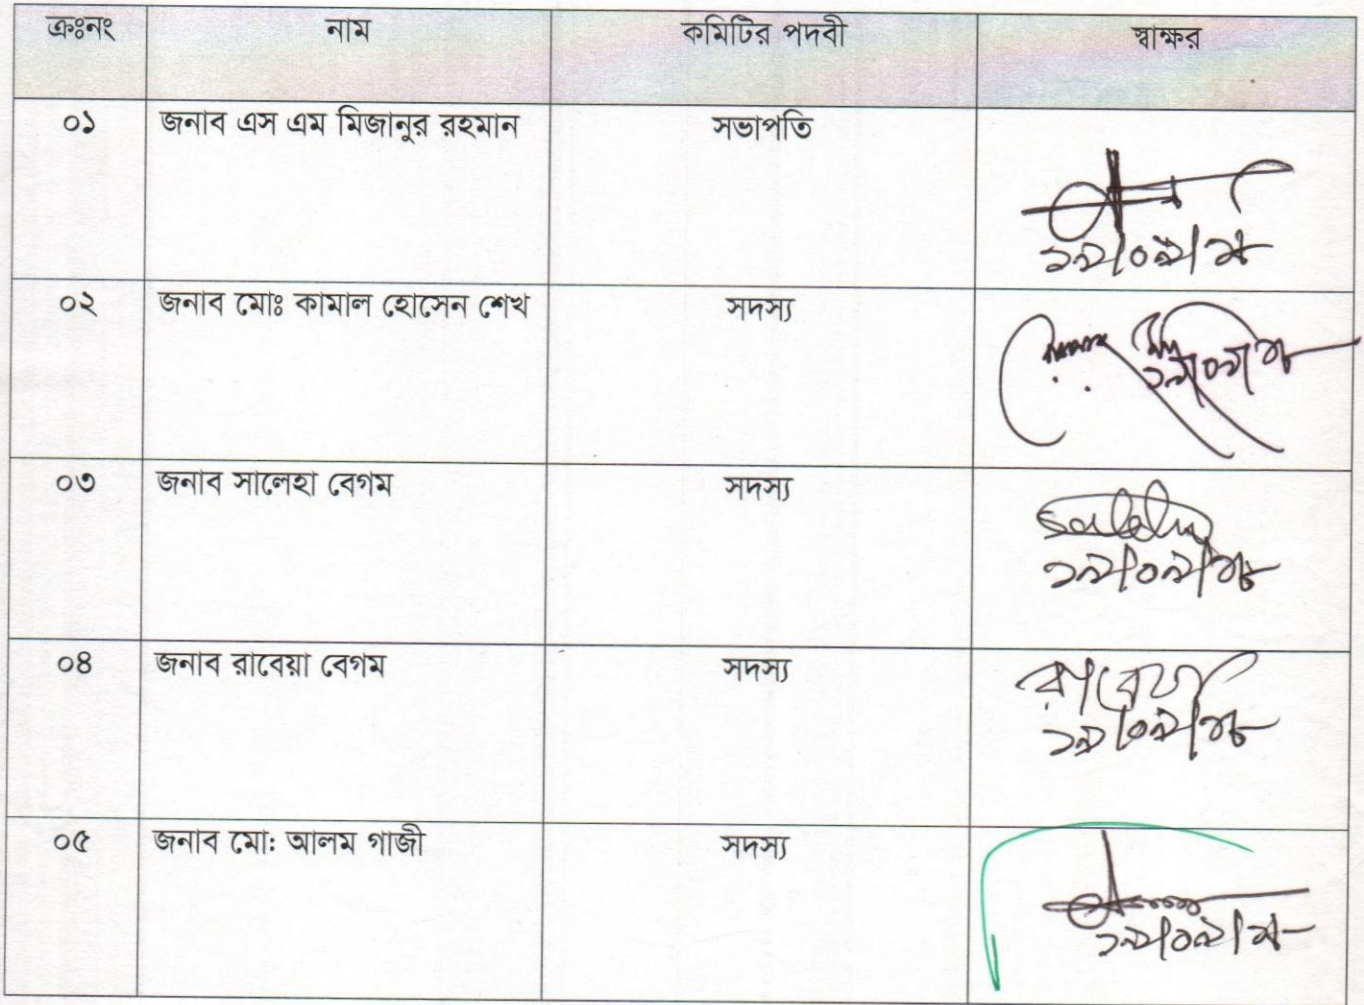 ক্রঃনং নাম কমিটির পদবী স্বাক্ষর
০১ জনাব এস এম মিজানুর রহমান সভাপতি
০২ জনাব মোঃ কামাল হোসেন শেখ সদস্য
০৩ জনাব সালেহা বেগম সদস্য
Saleha
০৪ জনাব রাবেয়া বেগম সদস্য
রাবেয়া
০৫ জনাব মো: আলম গাজী সদস্য